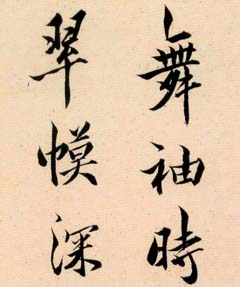 舞袖時
翠幙深